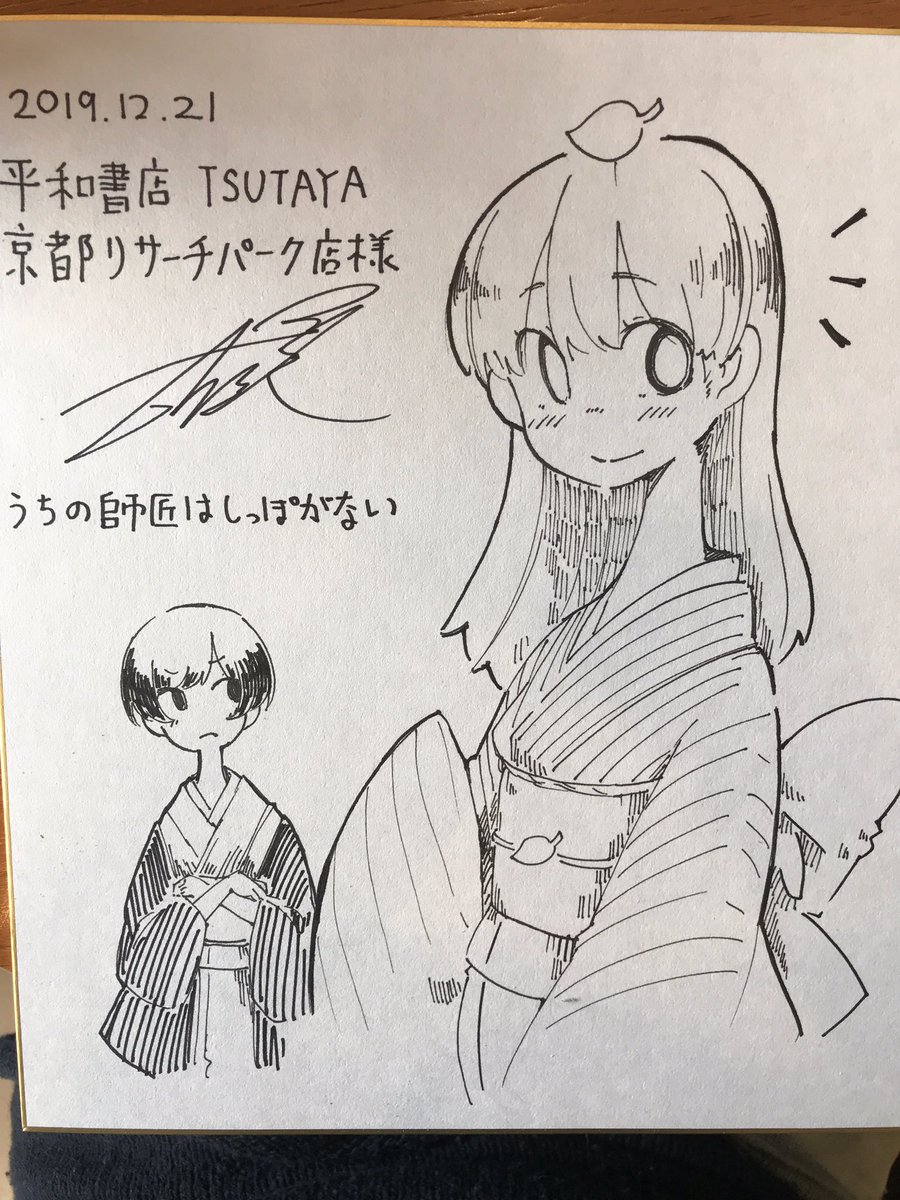 2019.12.21
平和書店 TSUTAYA
京都リサーチパーク店様
うちの師匠はしっぽがない